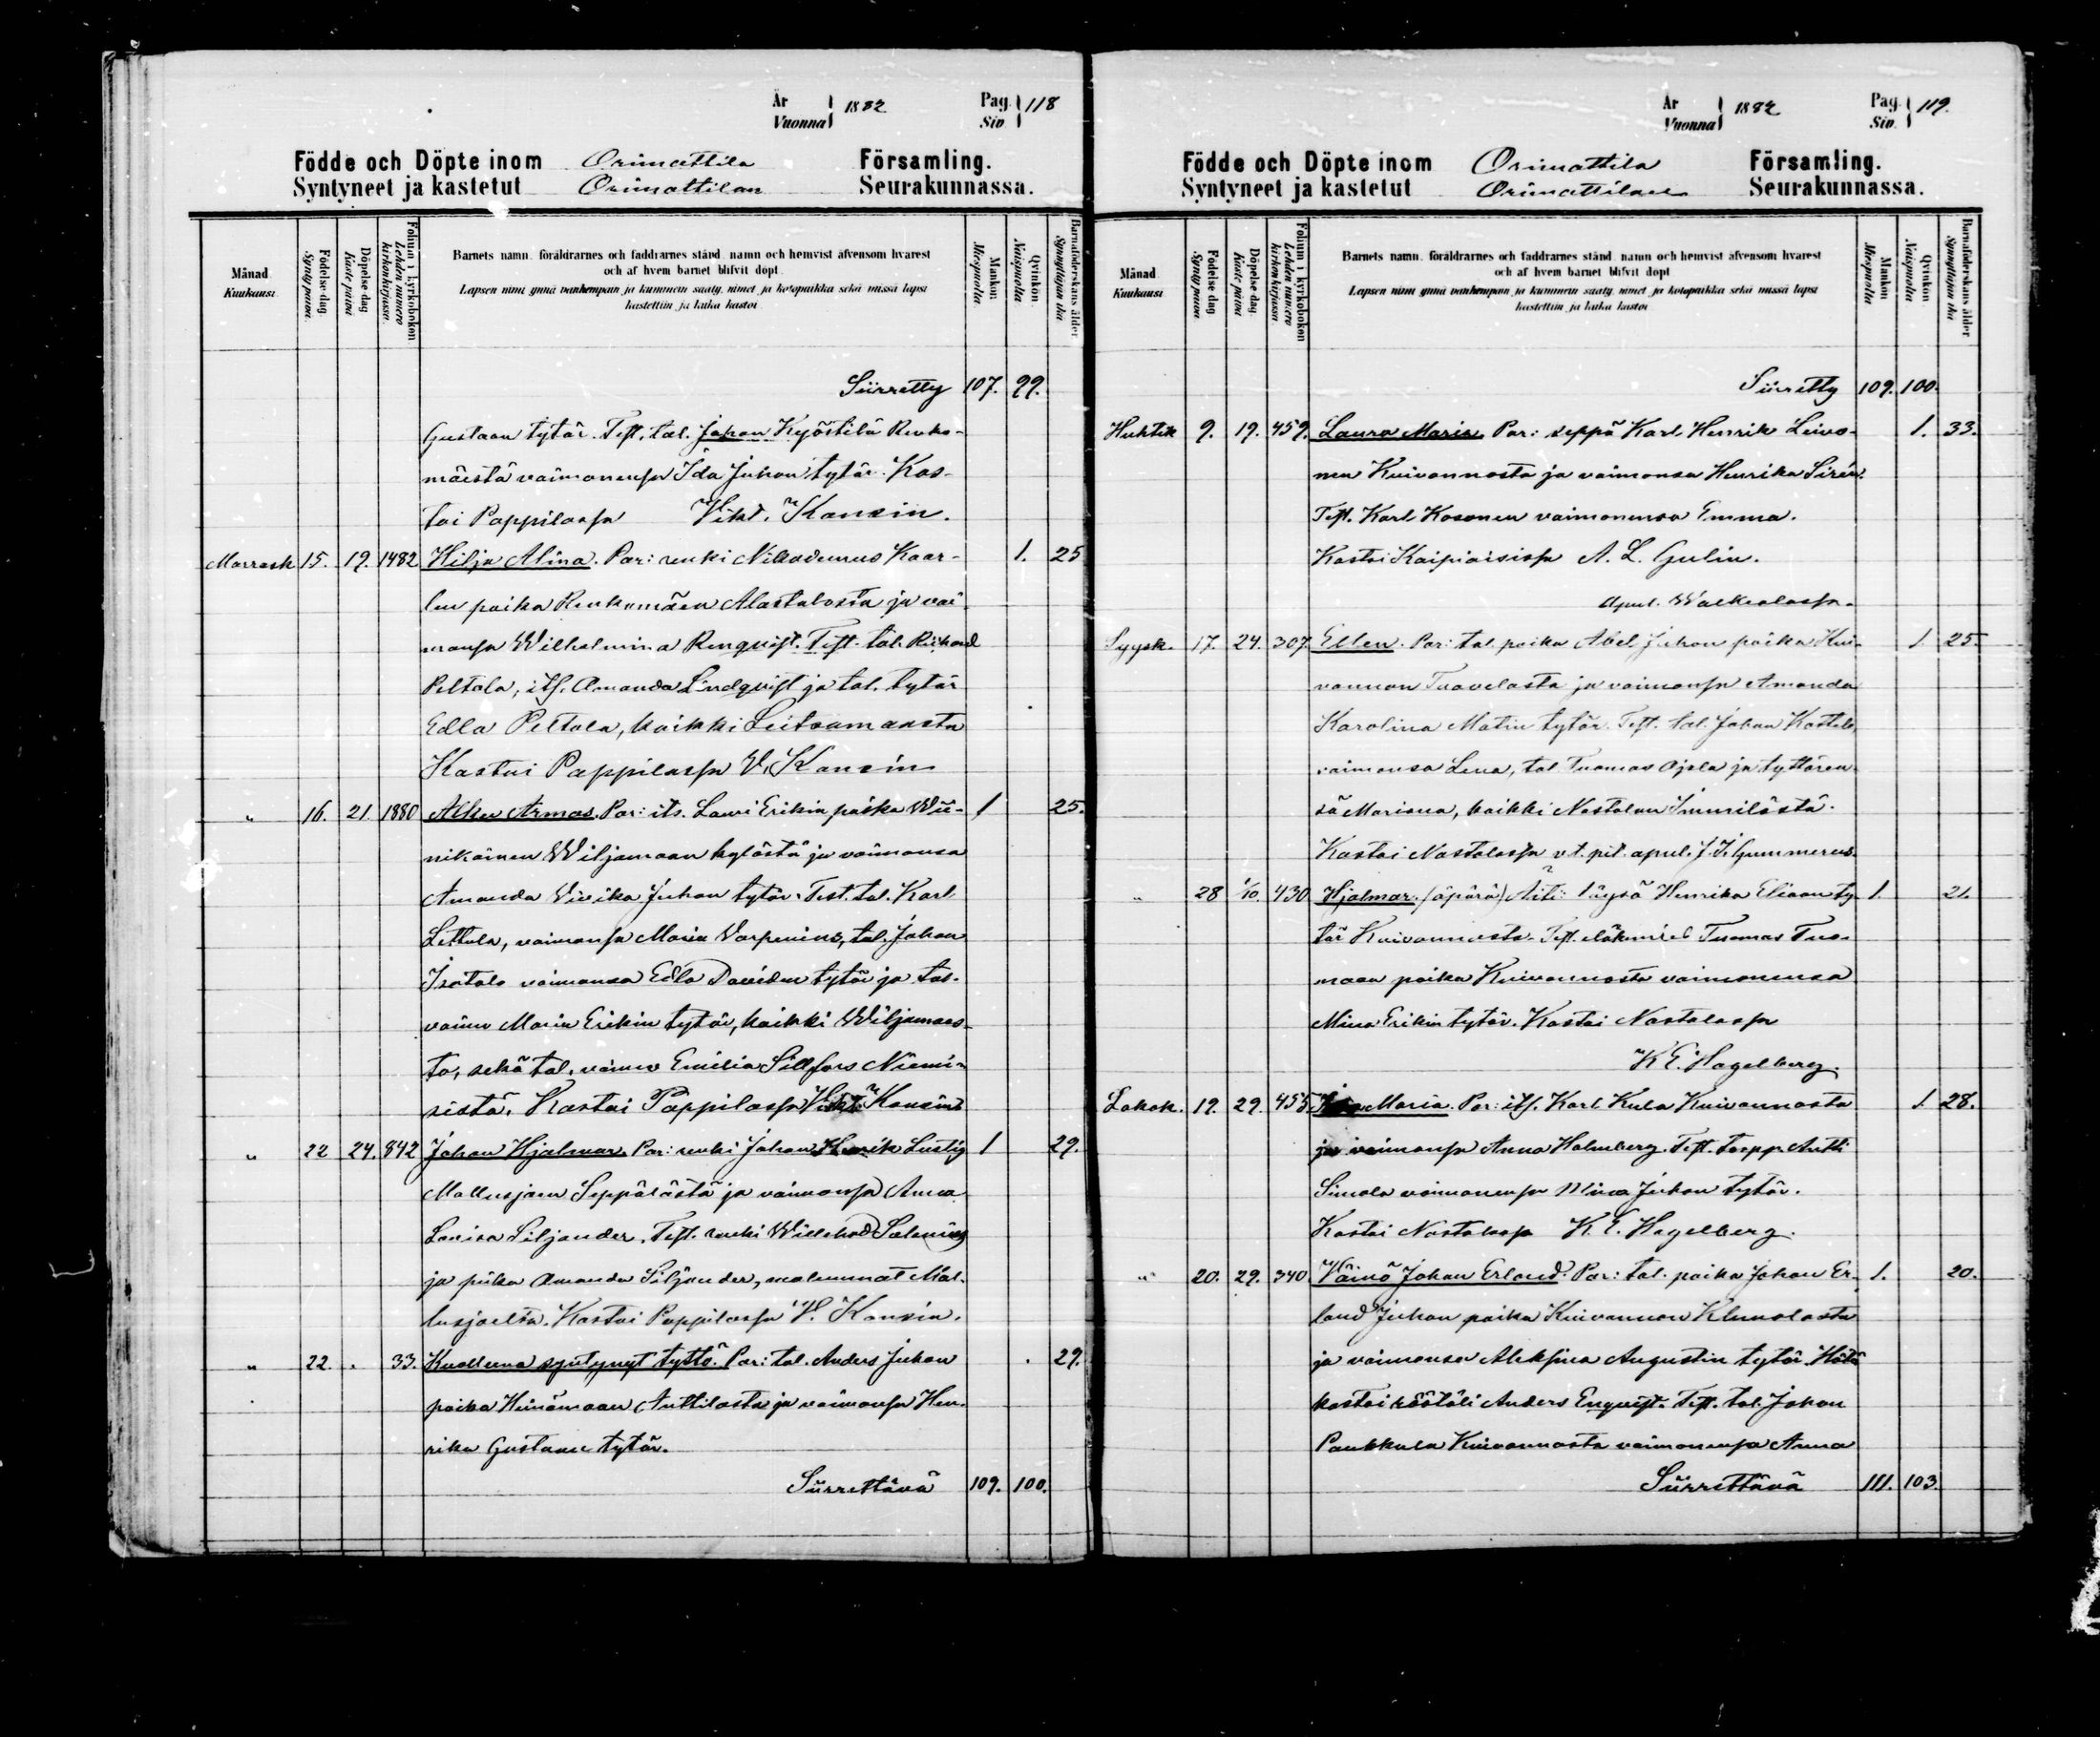 År
Vuonna } 1882
Pag.
Siv. } 118
Födde och Döpte inom Orimattila Församling.
Syntyneet ja kastetut Orimattilan Seurakunnassa.
Månad. Kuukausi.
Födelse dag. Syntypäivä.
Döpelse dag. Kaste päivä
Folium i kyrkoboken Lehden numero kirkonkirjassa.
Barnets namn, föräldrarnes och faddrarnes stånd, namn och hemvist äfvensom hvarest
och af hvem barnet blifvit döpt.
Lapsen nimi ynnä vanhempain ja kummein sääty, nimet ja kotopaikka sekä missä lapsi
kastettiin ja kuka kastoi.
Mankön. Miespuolia.
Qvinkön. Naispuolia.
Barnaföderskans ålder. Synnyttäjän ikä
Siirretty 107. 99.
Gustaan tytär. Test. tal. Johan Kyöstilä Renko-
mäestä vaimonensa Ida Juhon tytär. Kas-
toi Pappilassa Vikt. Kansin.
Marrask 15. 19. 1482 Hilja Alina. Par: renki Nikodemus Kaar- 1. 25
len poika Renkomäen Alastalosta ja vai-
monsa Wilhelmina Renqvist. Test. tal. Rickard
Peltola, its. Amanda Lindqvist ja tal. tytär
Edla Peltola, kaikki Leitsamaasta
Kastoi Pappilassa V. Kansin
" 16. 21. 1880 Armas. Par: its. Lauri Erikin poika Wii- 1 25.
nikainen Wiljamaan kylästä ja vaimonsa
Amanda Vivika Juhon tytär. Test. tal. Karl
Lettula, vaimonsa Maria Varpenius, tal. Johan
Isotalo vaimonsa Edla Davidin tytär ja tal.
vaimo Maria Erikin tytär, kaikki Wiljamaas-
ta, sekä tal. vaimo Emilia Sillfors Niemi-
sistä. Kastoi Pappilassa Vikt. Kansin
" 22 24. 842 Johan Hjalmar. Par: renki Johan Henrik Lustig 1 29.
Mallusjoen Seppälästä ja vaimonsa Anna
Lovisa Siljander. Test. renki Willehad Salenius
ja piika Amanda Siljander, molemmat Mal-
lusjoelta. Kastoi Pappilassa V. Kansin.
" 22. . 33. Kuolleena syntynyt tyttö. Par: tal. Anders Juhon . 29.
poika Heinämaan Anttilasta ja vaimonsa Hen-
rika Gustaan tytär.
Siirrettävä 109. 100.
År
Vuonna } 1882
Pag.
Siv. } 119.
Födde och Döpte inom Orimattila Församling.
Syntyneet ja kastetut Orimattilan Seurakunnassa.
Månad. Kuukausi.
Födelse dag. Syntypäivä.
Döpelse dag. Kaste päivä
Folium i kyrkoboken Lehden numero kirkonkirjassa
Barnets namn, föräldrarnes och faddrarnes stånd, namn och hemvist äfvensom hvarest
och af hvem barnet blifvit döpt
Lapsen nimi ynnä vanhempain ja kummein sääty, nimet ja kotopaikka sekä missä lapsi
kastettiin ja kuka kastoi
Mankön. Miespuolia
Qvinkön. Naispuolia
Barnaföderskans ålder Synnyttäjän ikä
Siirretty 109. 100.
Huhtik 9. 19. 459. Laura Maria. Par: seppä Karl Henrik Leivo- 1. 33.
nen Kuivannosta ja vaimonsa Henrika Sirén.
Test. Karl Kosonen vaimonensa Emma.
Kastoi Kaipiaisissa A. L. Gulin.
Apul. Walkealassa.
Syysk. 17. 24. 307. Ellen. Par: tal. poika Abel Juhon poika Kui- 1 25.
vannon Tuovelasta ja vaimonsa Amanda
Karolina Matin tytär. Test. tal. Johan Kostela,
vaimonsa Lena, tal. Tuomas Ojala ja tyttären-
sä Mariana, kaikki Nastolan Immilästä.
Kastoi Nastolassa v.t. pit. apul. J. I. Gummerus.
" 28 1/10. 430 Hjalmar. (äpärä) Äiti: Henrika Eliaan ty- 1. 21.
tär Kuivannosta. Test. Tuomas Tuo-
maan poika Kuivannosta vaimonensa
Mina Erikin tytär. Kastoi Nastolassa
K E. Hagelberg.
Lokak. 19. 29. 455. Maria. Par: its. Karl Kula Kuivannosta 1. 28.
ja vaimonsa Anna Holmberg. Test. torpp. Antti
Simola vaimonensa Mina Juhon tytär.
Kastoi Nastolassa K. E. Hagelberg.
" 20. 29. 340 Väinö Johan Erland. Par: tal. poika Johan Er- 1. 20.
land Juhon poika Kuivannon Klemolasta
ja vaimonsa Aleksina Augustin tytär. Hätä
kastoi räätäli Anders Enqvist. Test. tal. Johan
Paukkula Kuivannosta vaimonensa Anna
Siirrettävä 111. 103.